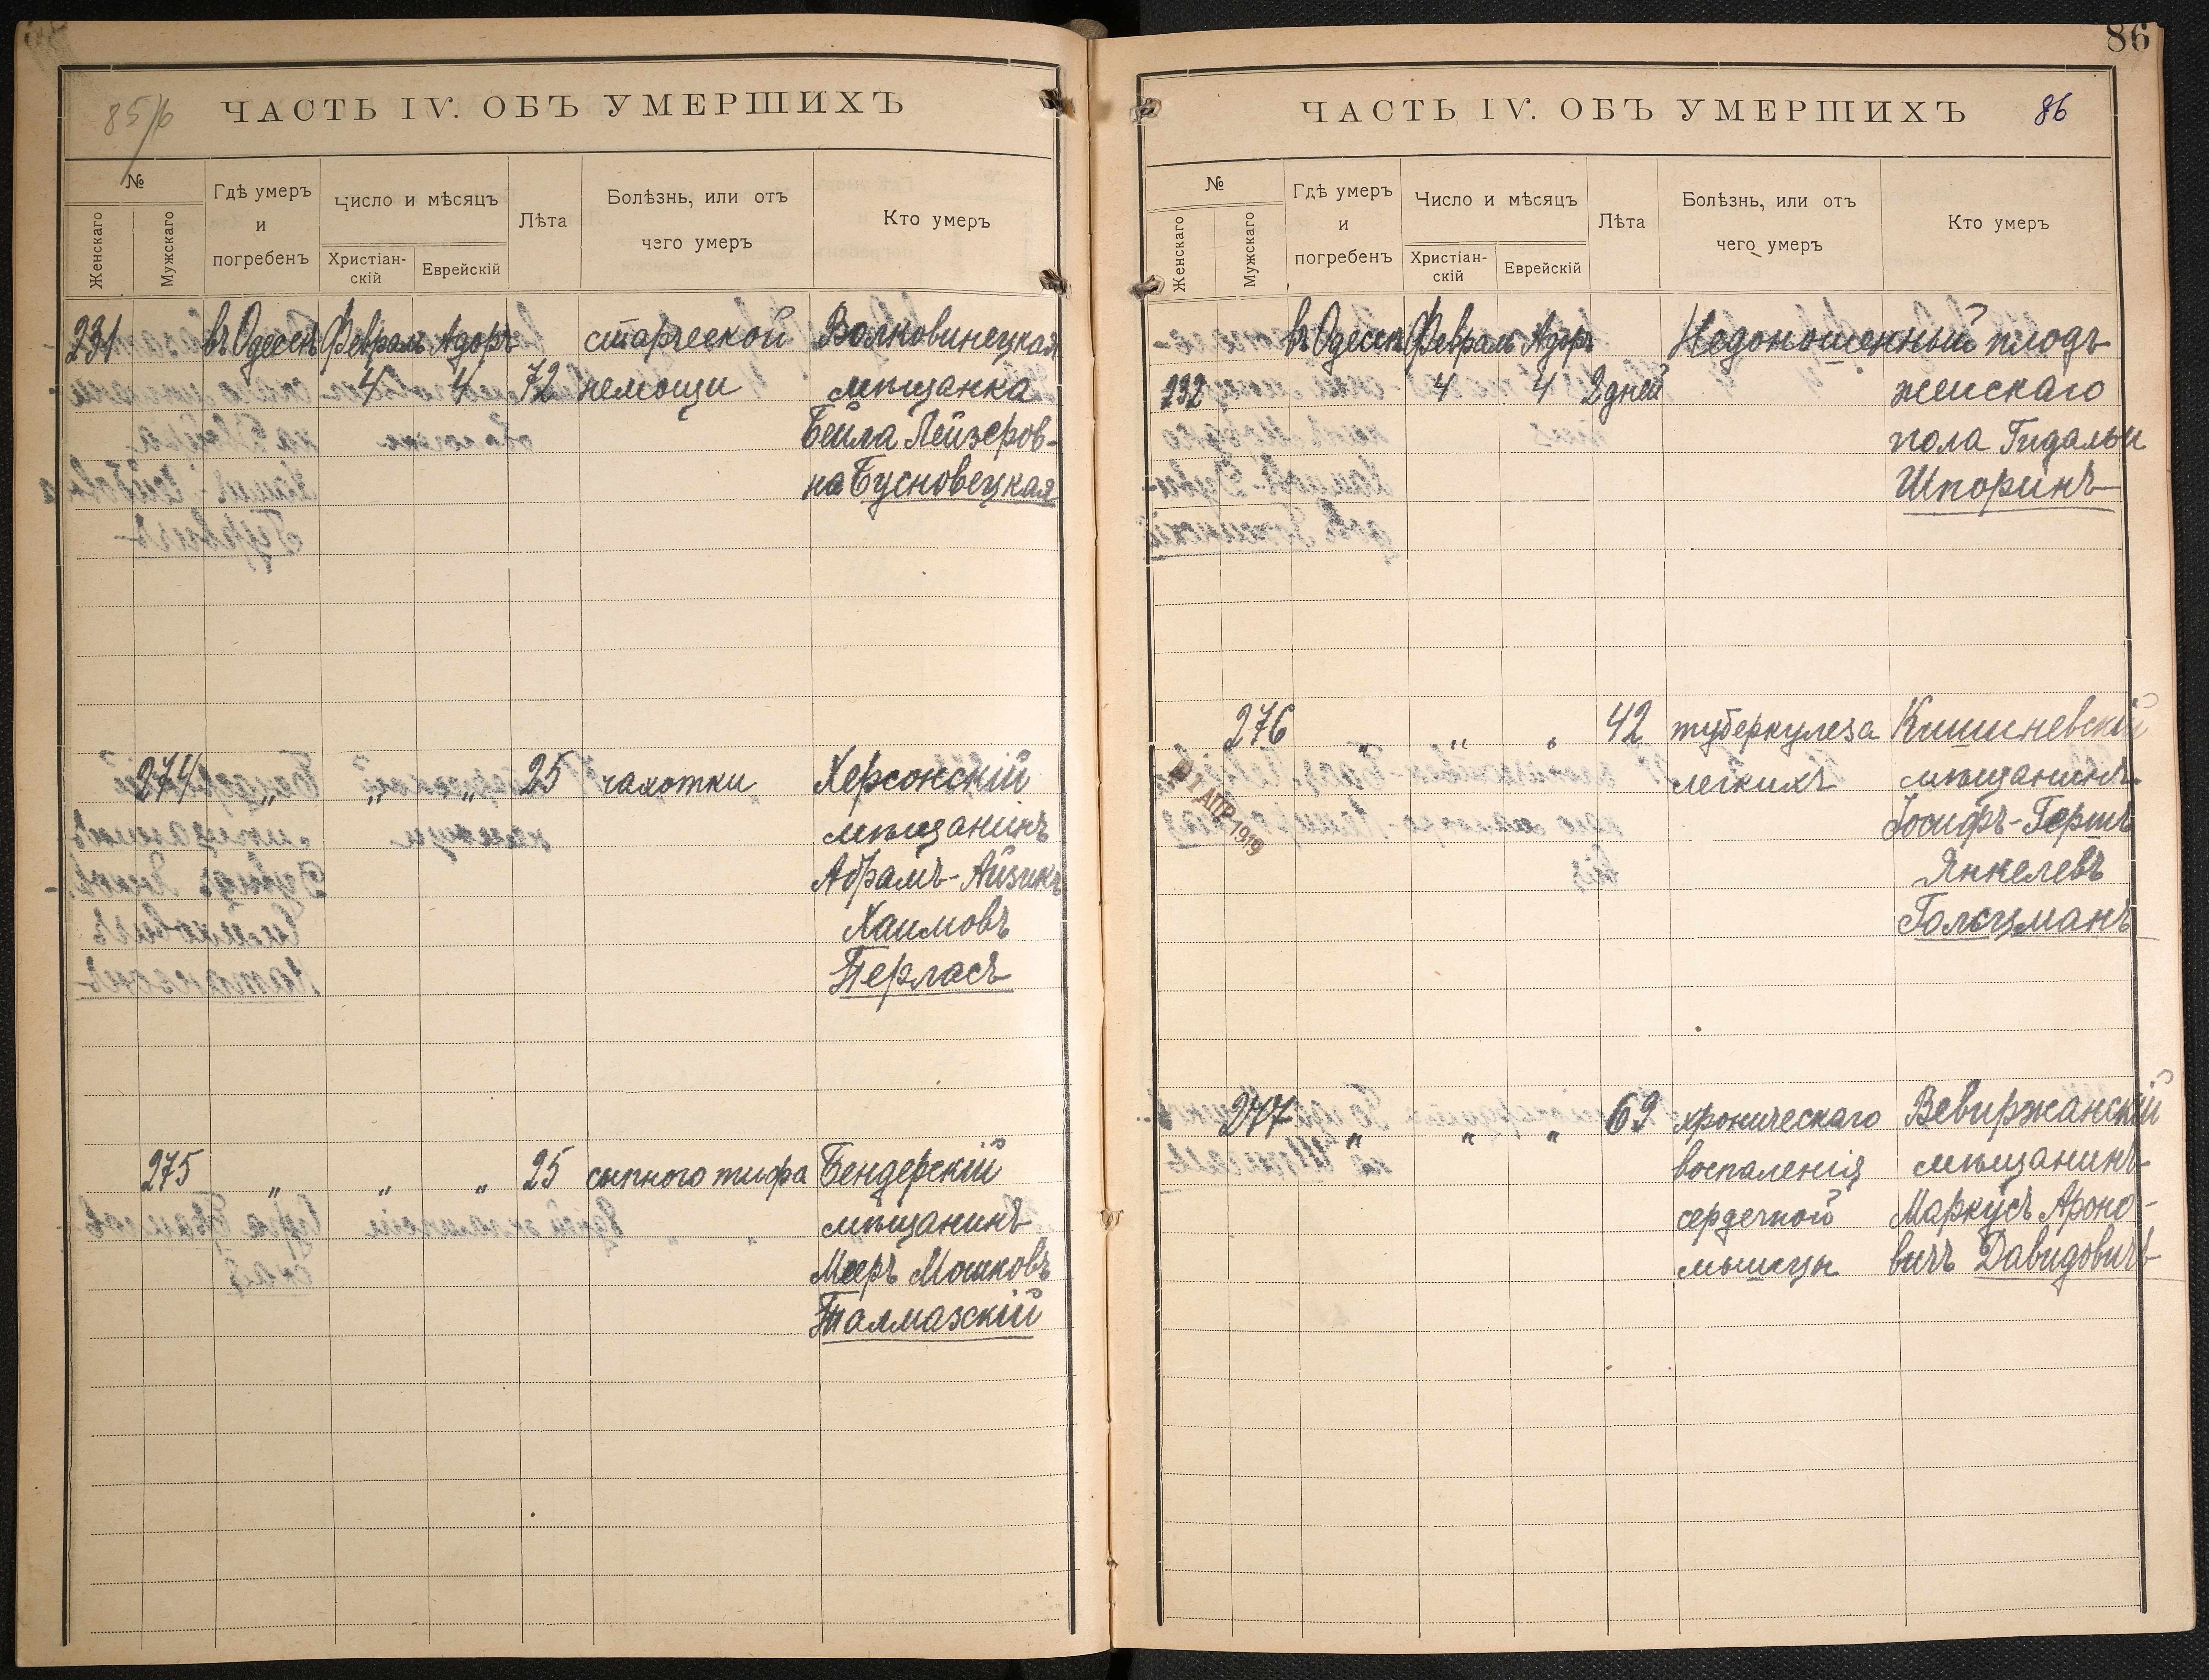 85/6
ЧАСТЬ IV. ОБЪ УМЕРШИХЪ
№
Женскаго
Мужскаго
Гдѣ умеръ
и
погребенъ
Число и мѣсяцъ
Христіан-
скій
Еврейскій
Лѣта
Болѣзнь, или отъ
чего умеръ
Кто умеръ
231 въ Одессѣ Февраль Адоръ старческой Волковинецкая
4 4 72 немощи мѣщанка
Бейла Лейзеров-
на Бусновецкая
274 „ „ „ 25 чахотки Херсонскій
мѣщанинъ
Абрамъ-Айзикъ
Хаимовъ
Перласъ
275 „ „ „ 25 сыпного тифа Бендерскій
мѣщанинъ
Мееръ Мошковъ
Талмазскій
86
ЧАСТЬ IV. ОБЪ УМЕРШИХЪ 86
№
Женскаго
Мужскаго
Гдѣ умеръ
и
погребенъ
Число и мѣсяцъ
Христіан-
скій
Еврейскій
Лѣта
Болѣзнь, или отъ
чего умеръ
Кто умеръ
въ Одессѣ Февраль Адоръ Недоношенный плодъ
232 4 4 2 дней женскаго
пола Гидальи
Шпоринъ
276 „ „ „ 42 туберкулеза Кишиневскій
легкихъ мѣщанинъ
Іосифъ-Гершъ
Янкелевъ
Гольцманъ
21 АПР 1919
277 „ „ „ 69 хроническаго Вевиржанскій
воспаленія мѣщанинъ
сердечной Маркусъ Ароно-
мышцы вичъ Давидовичъ